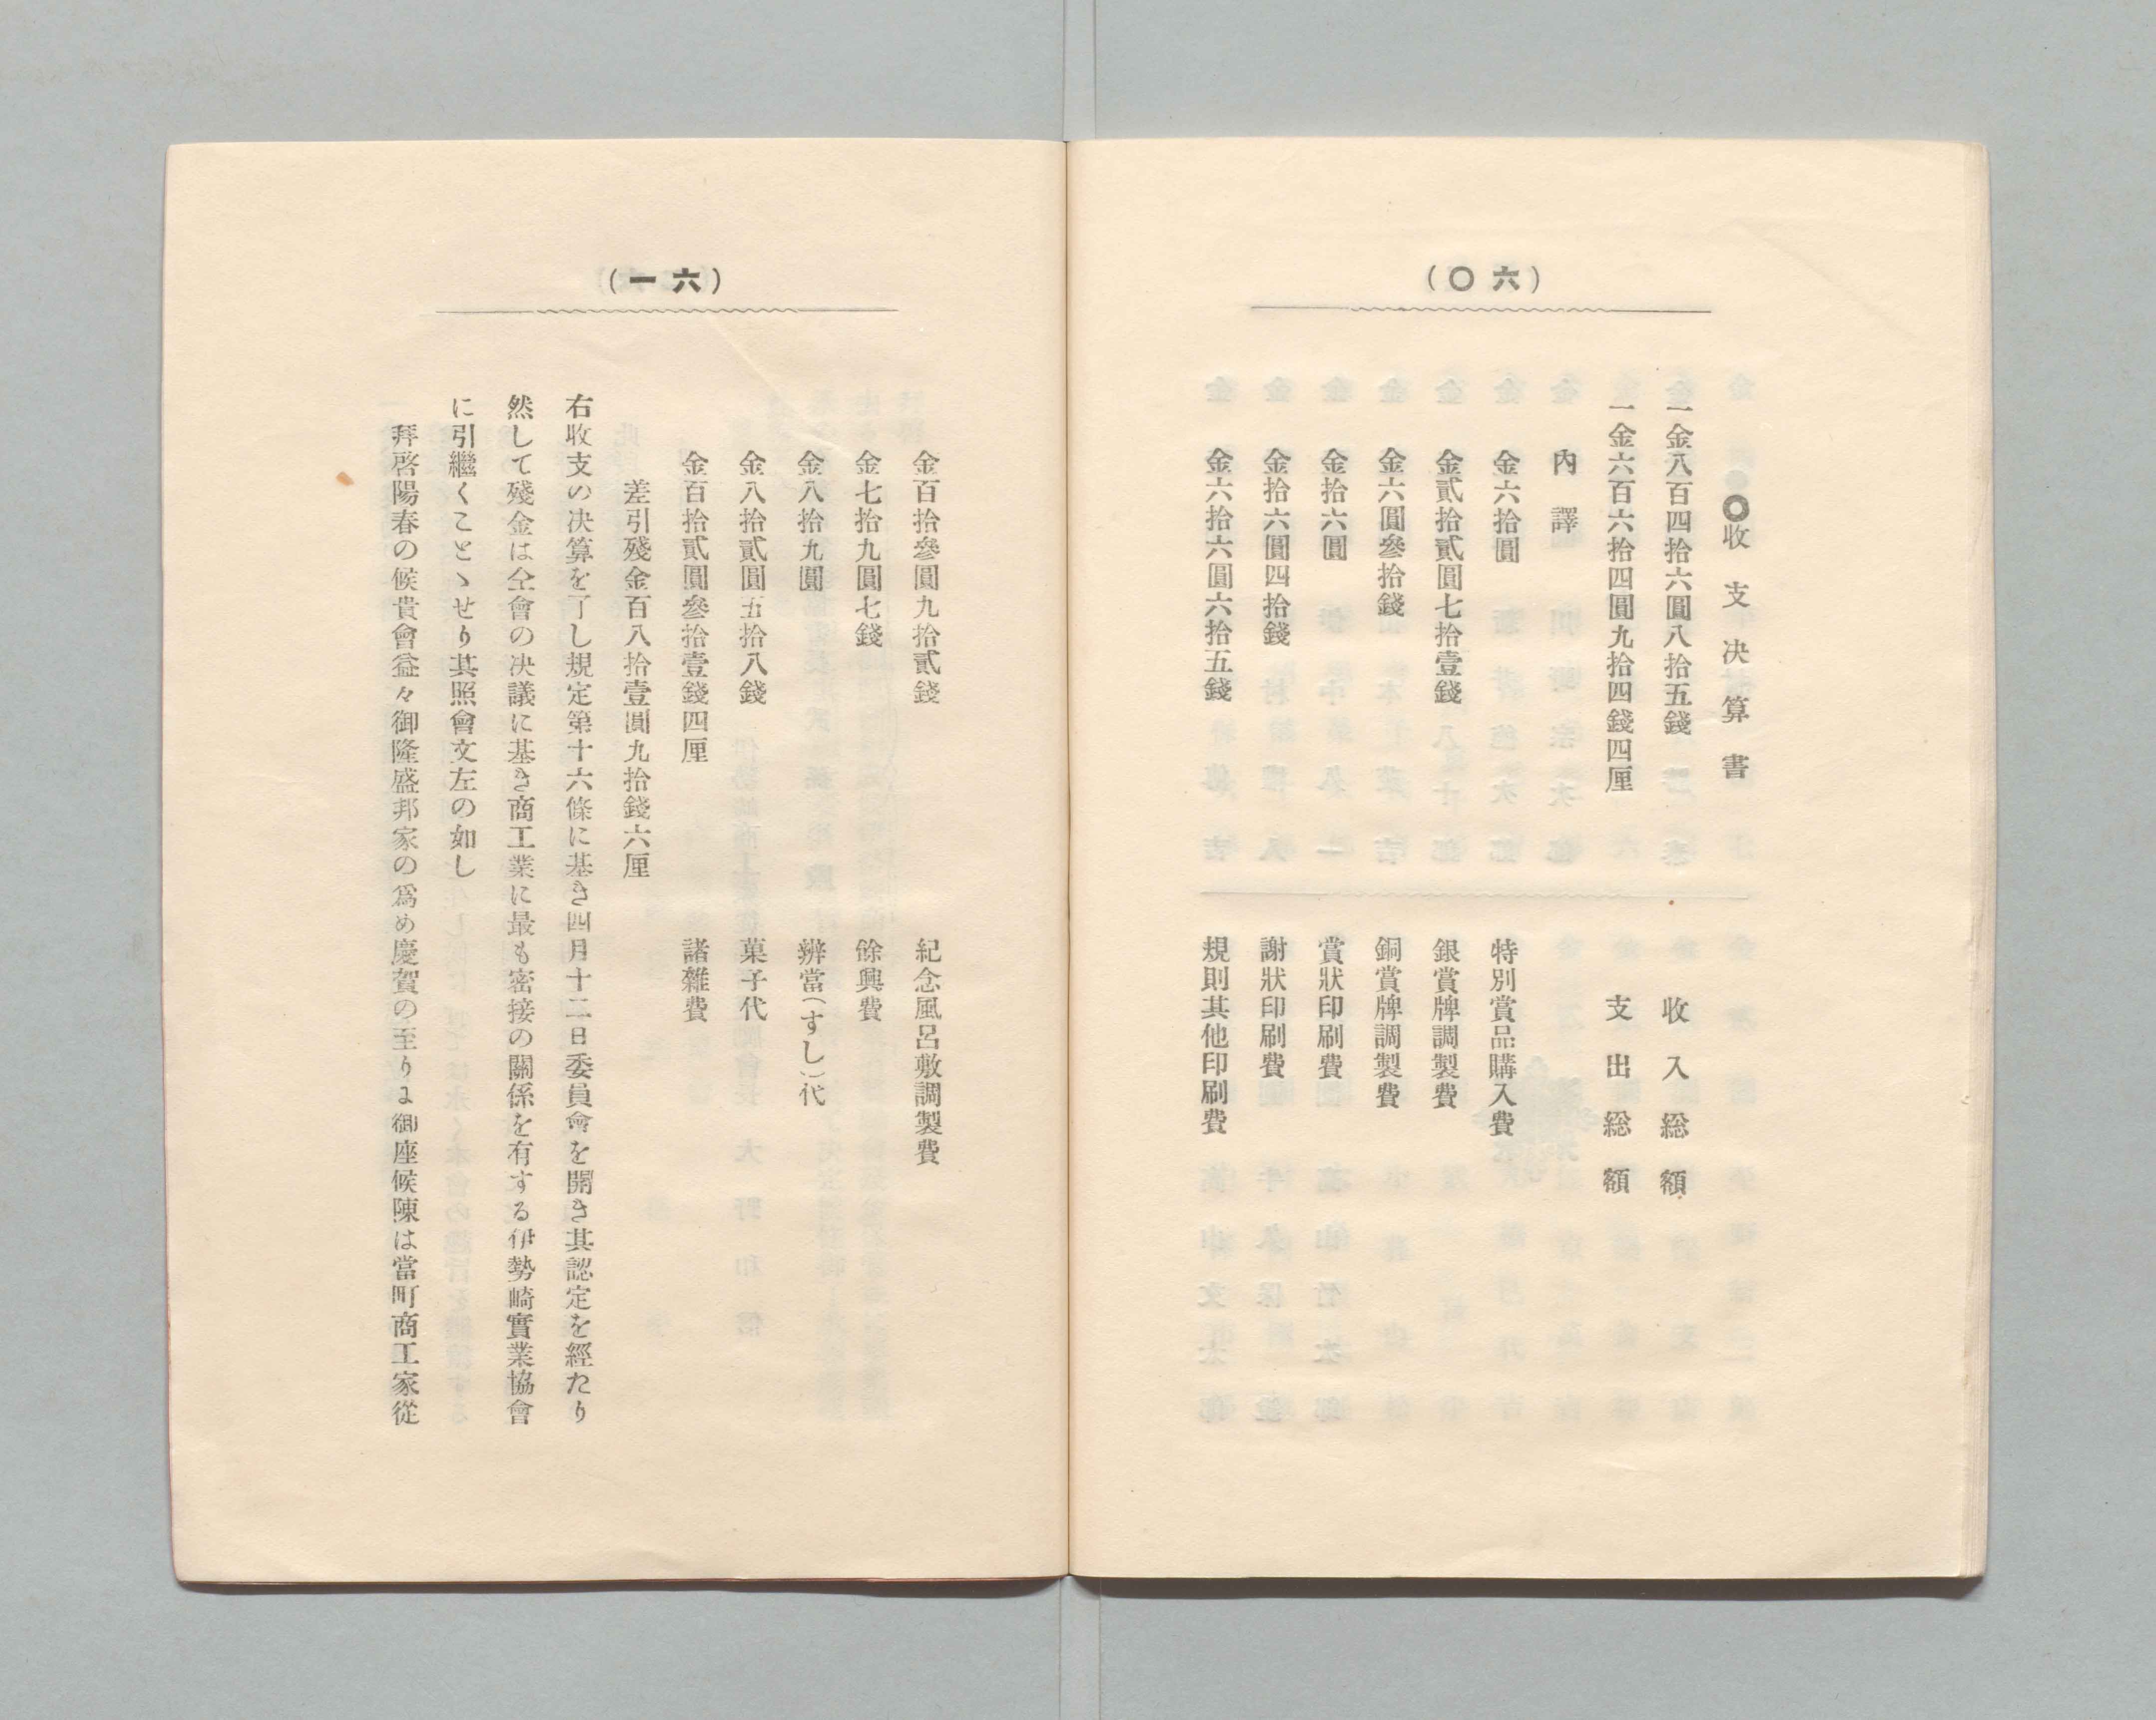 （六〇）
〇收支決算書
一金八百四拾六圓八拾五錢　收入総額
一金六百六拾四圓九拾四錢四厘　支出総額
內譯
金六拾圓　特別賞品購入費
金貳拾貳圓七拾壹錢　銀賞牌調製費
金六圓參拾錢　銅賞牌調製費
金拾六圓　賞狀印刷費
金拾六圓四拾錢　謝狀印刷費
金六拾六圓六拾五錢　規則其他印刷費
（六一）
金百拾參圓九拾貳錢　紀念風呂敷調製費
金七拾九圓七錢　餘興費
金八拾九圓　辨當（すし）代
金八拾貳圓五拾八錢　菓子代
金百拾貳圓參拾壹錢四厘　諸雜費
差引殘金百八拾壹圓九拾錢六厘
右收支の決算を了し規定第十六條に基き四月十二日委員會を開き其認定を經たり
然して殘金は仝會の決議に基き商工業に最も密接の關係を有する伊勢崎實業協會
に引繼くことゝせり其照會文左の如し
拜啓陽春の候貴會益々御隆盛邦家の爲め慶賀の至りに御座候陳は當町商工家從